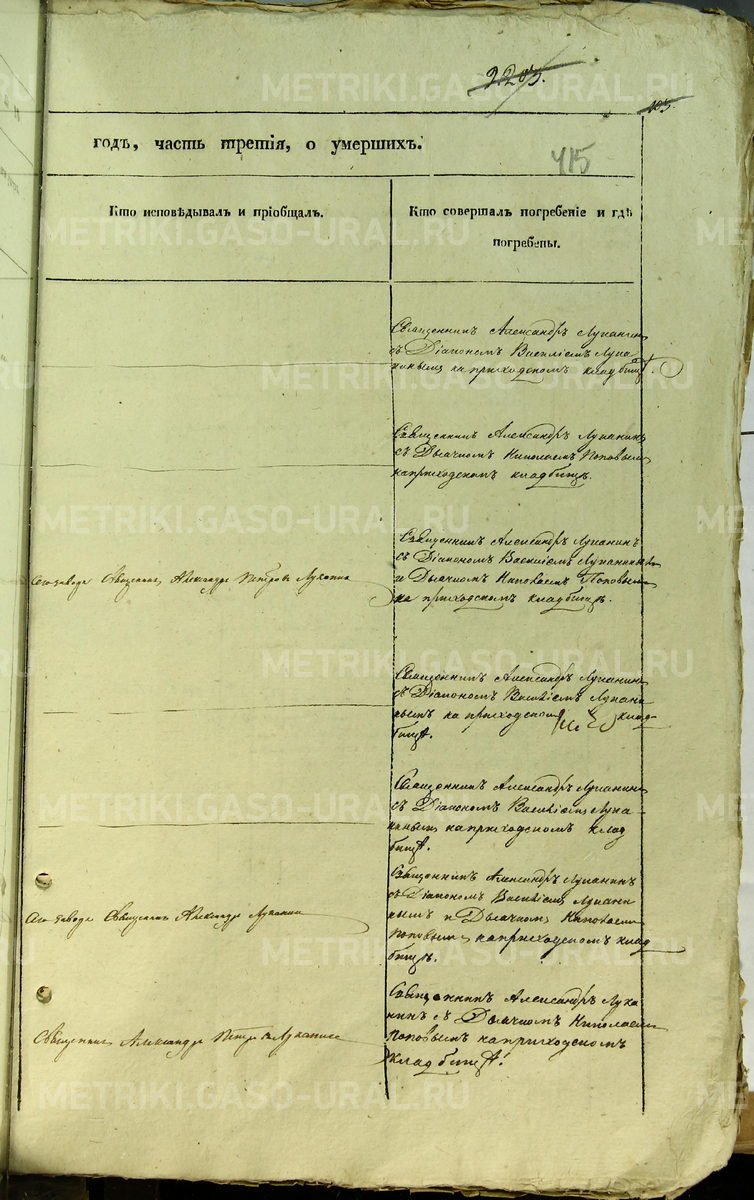 2203.
105.
годъ, часть третія, о умершихъ.
415
Кто исповѣдывалъ и пріобщалъ.
Кто совершалъ погребеніе и гдѣ
погребены.
Священникъ Александръ Луканинъ
съ Діакономъ Василіемъ Лука
нинымъ на приходскомъ кладбищѣ.
Священникъ Александръ Луканинъ
съ Дьячкомъ Николаемъ Поповымъ
на приходскомъ кладбищѣ.
Священникъ Александръ Луканинъ
съ Діакономъ Василіемъ Луканинымъ
и Дьячкомъ Николаемъ Поповымъ
на приходскомъ кладбищѣ.
Сего завода Священникъ Александръ Петровъ Луканинъ
Священникъ Александръ Луканинъ
съ Діакономъ Василіемъ Лукани
нымъ на приходскомъ клад-
бищѣ.
Священникъ Александръ Луканинъ
съ Діакономъ Василіемъ Лука-
нинымъ на приходскомъ клад
бищѣ.
Священникъ Александръ Луканинъ
съ Діакономъ Василіемъ Лукани
нымъ и Дьячкомъ Николаемъ
Поповымъ на приходскомъ клад
бищѣ.
Сего завода Священникъ Александръ Луканинъ
Священникъ Александръ Лука
нинъ съ Дьячкомъ Николаемъ
Поповымъ на приходскомъ
кладбищѣ.
Священникъ Александръ Петровъ Луканинъ
METRIKI.GASO-URAL.RU